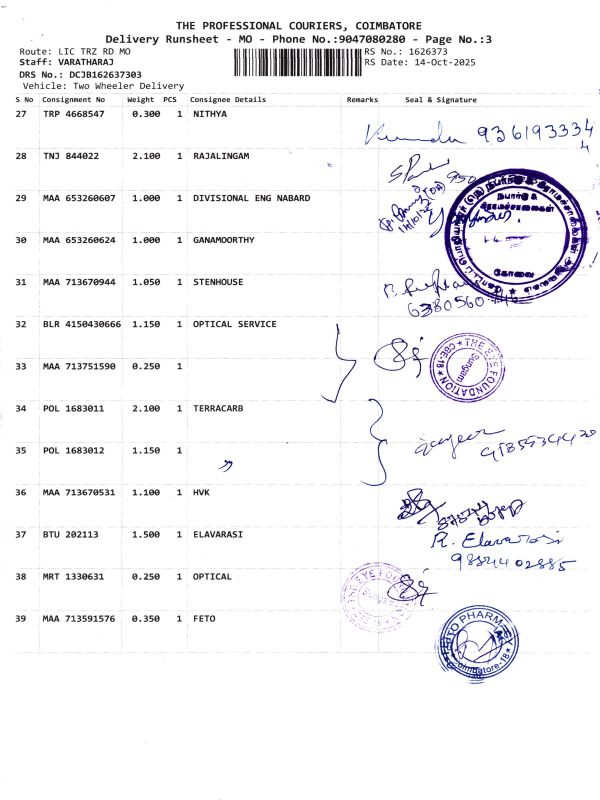 THE PROFESSIONAL COURIERS, COIMBATORE
Delivery Runsheet - MO - Phone No.:9047080280 - Page No.:3
Route: LIC TRZ RD MO RS No.: 1626373
Staff: VARATHARAJ RS Date: 14-Oct-2025
DRS No.: DCJB162637303
Vehicle: Two Wheeler Delivery
S No Consignment No Weight PCS Consignee Details Remarks Seal & Signature
27 TRP 4668547 0.300 1 NITHYA
9361933344
28 TNJ 844022 2.100 1 RAJALINGAM
29 MAA 653260607 1.000 1 DIVISIONAL ENG NABARD
நபார்டு &
கிராமச்சாலைகள்
கோவை
30 MAA 653260624 1.000 1 GANAMOORTHY
31 MAA 713670944 1.050 1 STENHOUSE
6380560
32 BLR 4150430666 1.150 1 OPTICAL SERVICE
THE EYE FOUNDATION
CBE-18
Sungam
33 MAA 713751590 0.250 1
34 POL 1683011 2.100 1 TERRACARB
35 POL 1683012 1.150 1
36 MAA 713670531 1.100 1 HVK
37 BTU 202113 1.500 1 ELAVARASI
R. Elavarasi
38 MRT 1330631 0.250 1 OPTICAL
THE EYE
39 MAA 713591576 0.350 1 FETO
PHARMA
Coimbatore-18